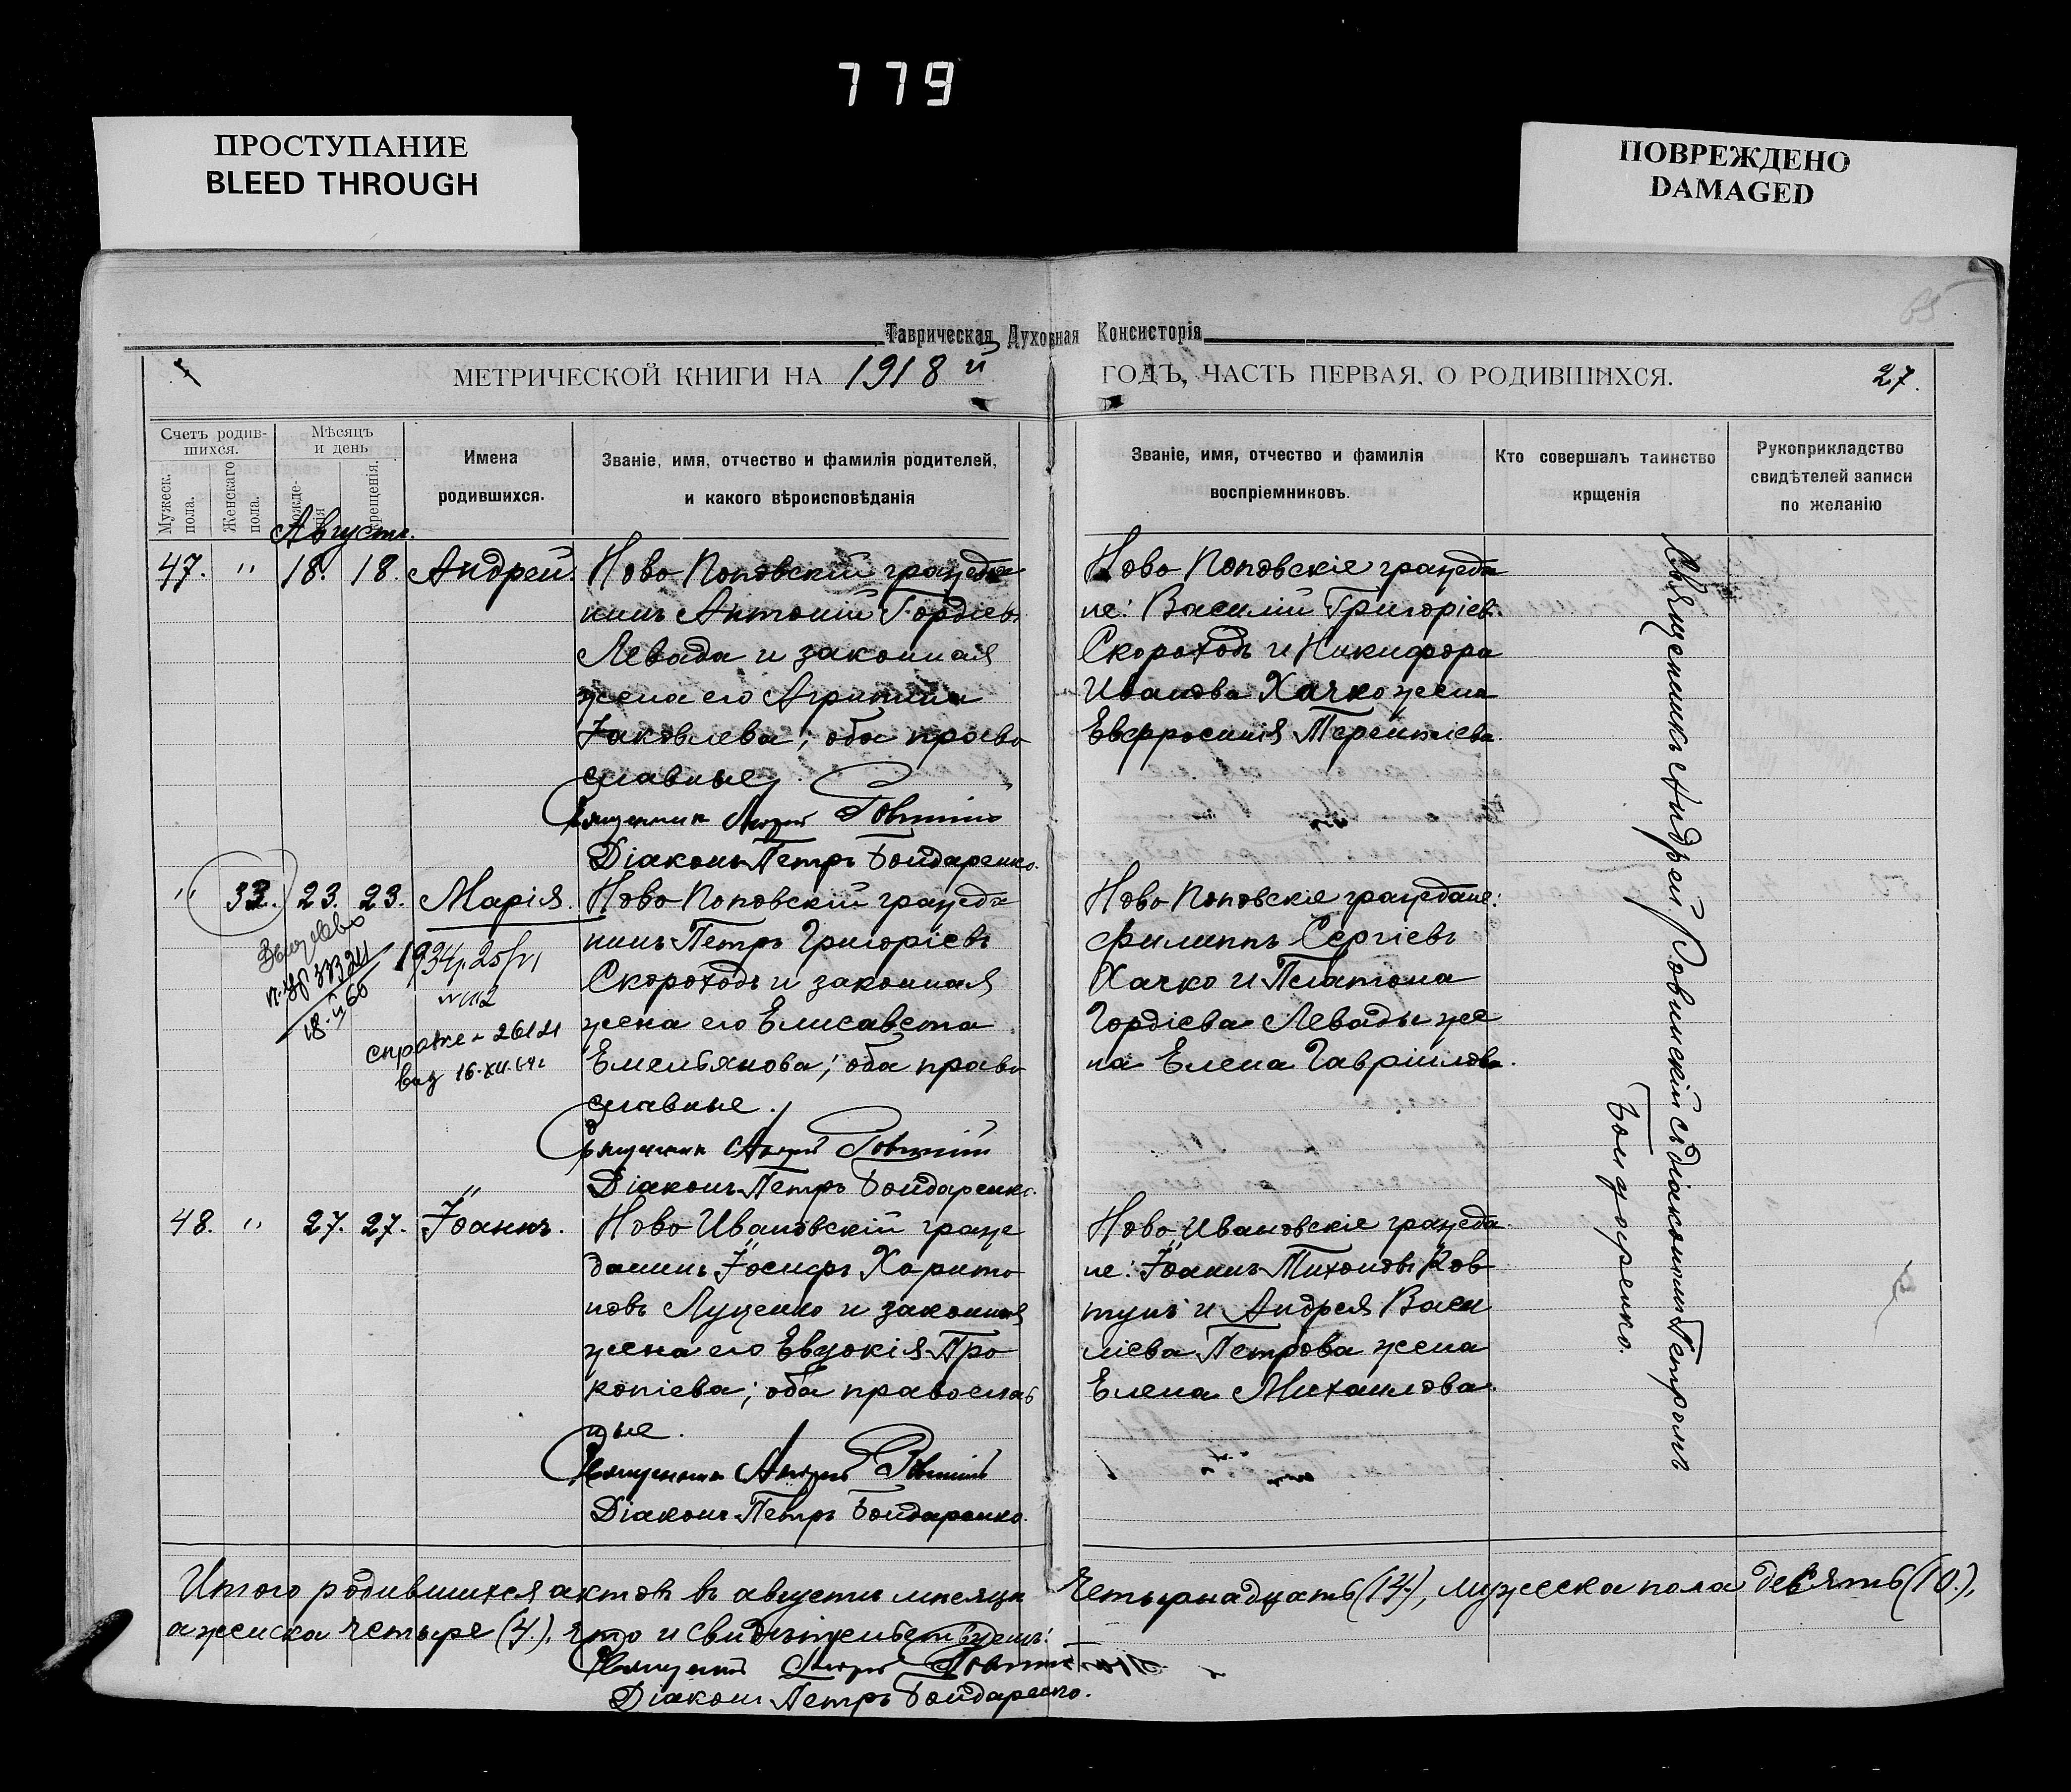 779
ПРОСТУПАНИЕ
BLEED THROUGH
ПОВРЕЖДЕНО
DAMAGED
65
Таврическая Духовная Консисторія
МЕТРИЧЕСКОЙ КНИГИ НА 1918 й ГОДЪ, ЧАСТЬ ПЕРВАЯ, О РОДИВШИХСЯ. 27.
Счетъ родив-
шихся.
Мужеск. пола.
Женскаго пола.
Мѣсяцъ
и день
рожде-
нія
крещенія.
Имена
родившихся.
Званіе, имя, отчество и фамилія родителей,
и какого вѣроисповѣданія
Званіе, имя, отчество и фамилія
воспріемниковъ.
Кто совершалъ таинство
крщенія
Рукоприкладство
свидѣтелей записи
по желанію
Августъ.
47. " 18. 18. Андрей.
Ново Поповскій гражда
нинъ Антоній Гордіевъ
Левада и законная
жена его Агрипина
Іаковлева; оба право
славные.
Священник Андрей Ровинский
Діаконъ Петръ Бондаренко.
Ново Поповскіе гражда
не: Василій Григоріев.
Скороходъ и Никифора
Иванова Хачко жена
Евфросинія Терентіева.
" 33. 23. 23. Марія.
1934, 25/VI
справке - 26121
выд 16.XII.64г
Ново Поповскій гражда
нинъ Петръ Григоріевъ
Скороходъ и законная
жена его Елисавета
Емельянова; оба право
славные.
Священник Андрей Ровинский
Діаконъ Петръ Бондаренко.
Ново Поповскіе граждане:
Филиппъ Сергіевъ
Хачко и Платона
Гордіева Левады же
на Елена Гавріилова.
48. " 27. 27. Іоаннъ.
Ново Ивановскій граж
данинъ Іосифъ Харито
новъ Луценко и законная
жена его Евдокія Про
копіева; оба православ
ные.
Священник Андрей Ровинский
Діаконъ Петръ Бондаренко.
Ново Ивановскіе гражда
не: Іоаннъ Тихоновъ Ков
тунъ и Андрея Васи
ліева Петрова жена
Елена Михаилова.
Священникъ Андрей Ровинскій съ діакономъ Петромъ
Бондаренко.
Итого родившихся актовъ въ августѣ мѣсяцѣ четырнадцать (14.), мужеска пола девять (10.),
а женска четыре (4.), что и свидѣтельствуемъ:
Священник Андрей Ровинский
Діаконъ Петръ Бондаренко.